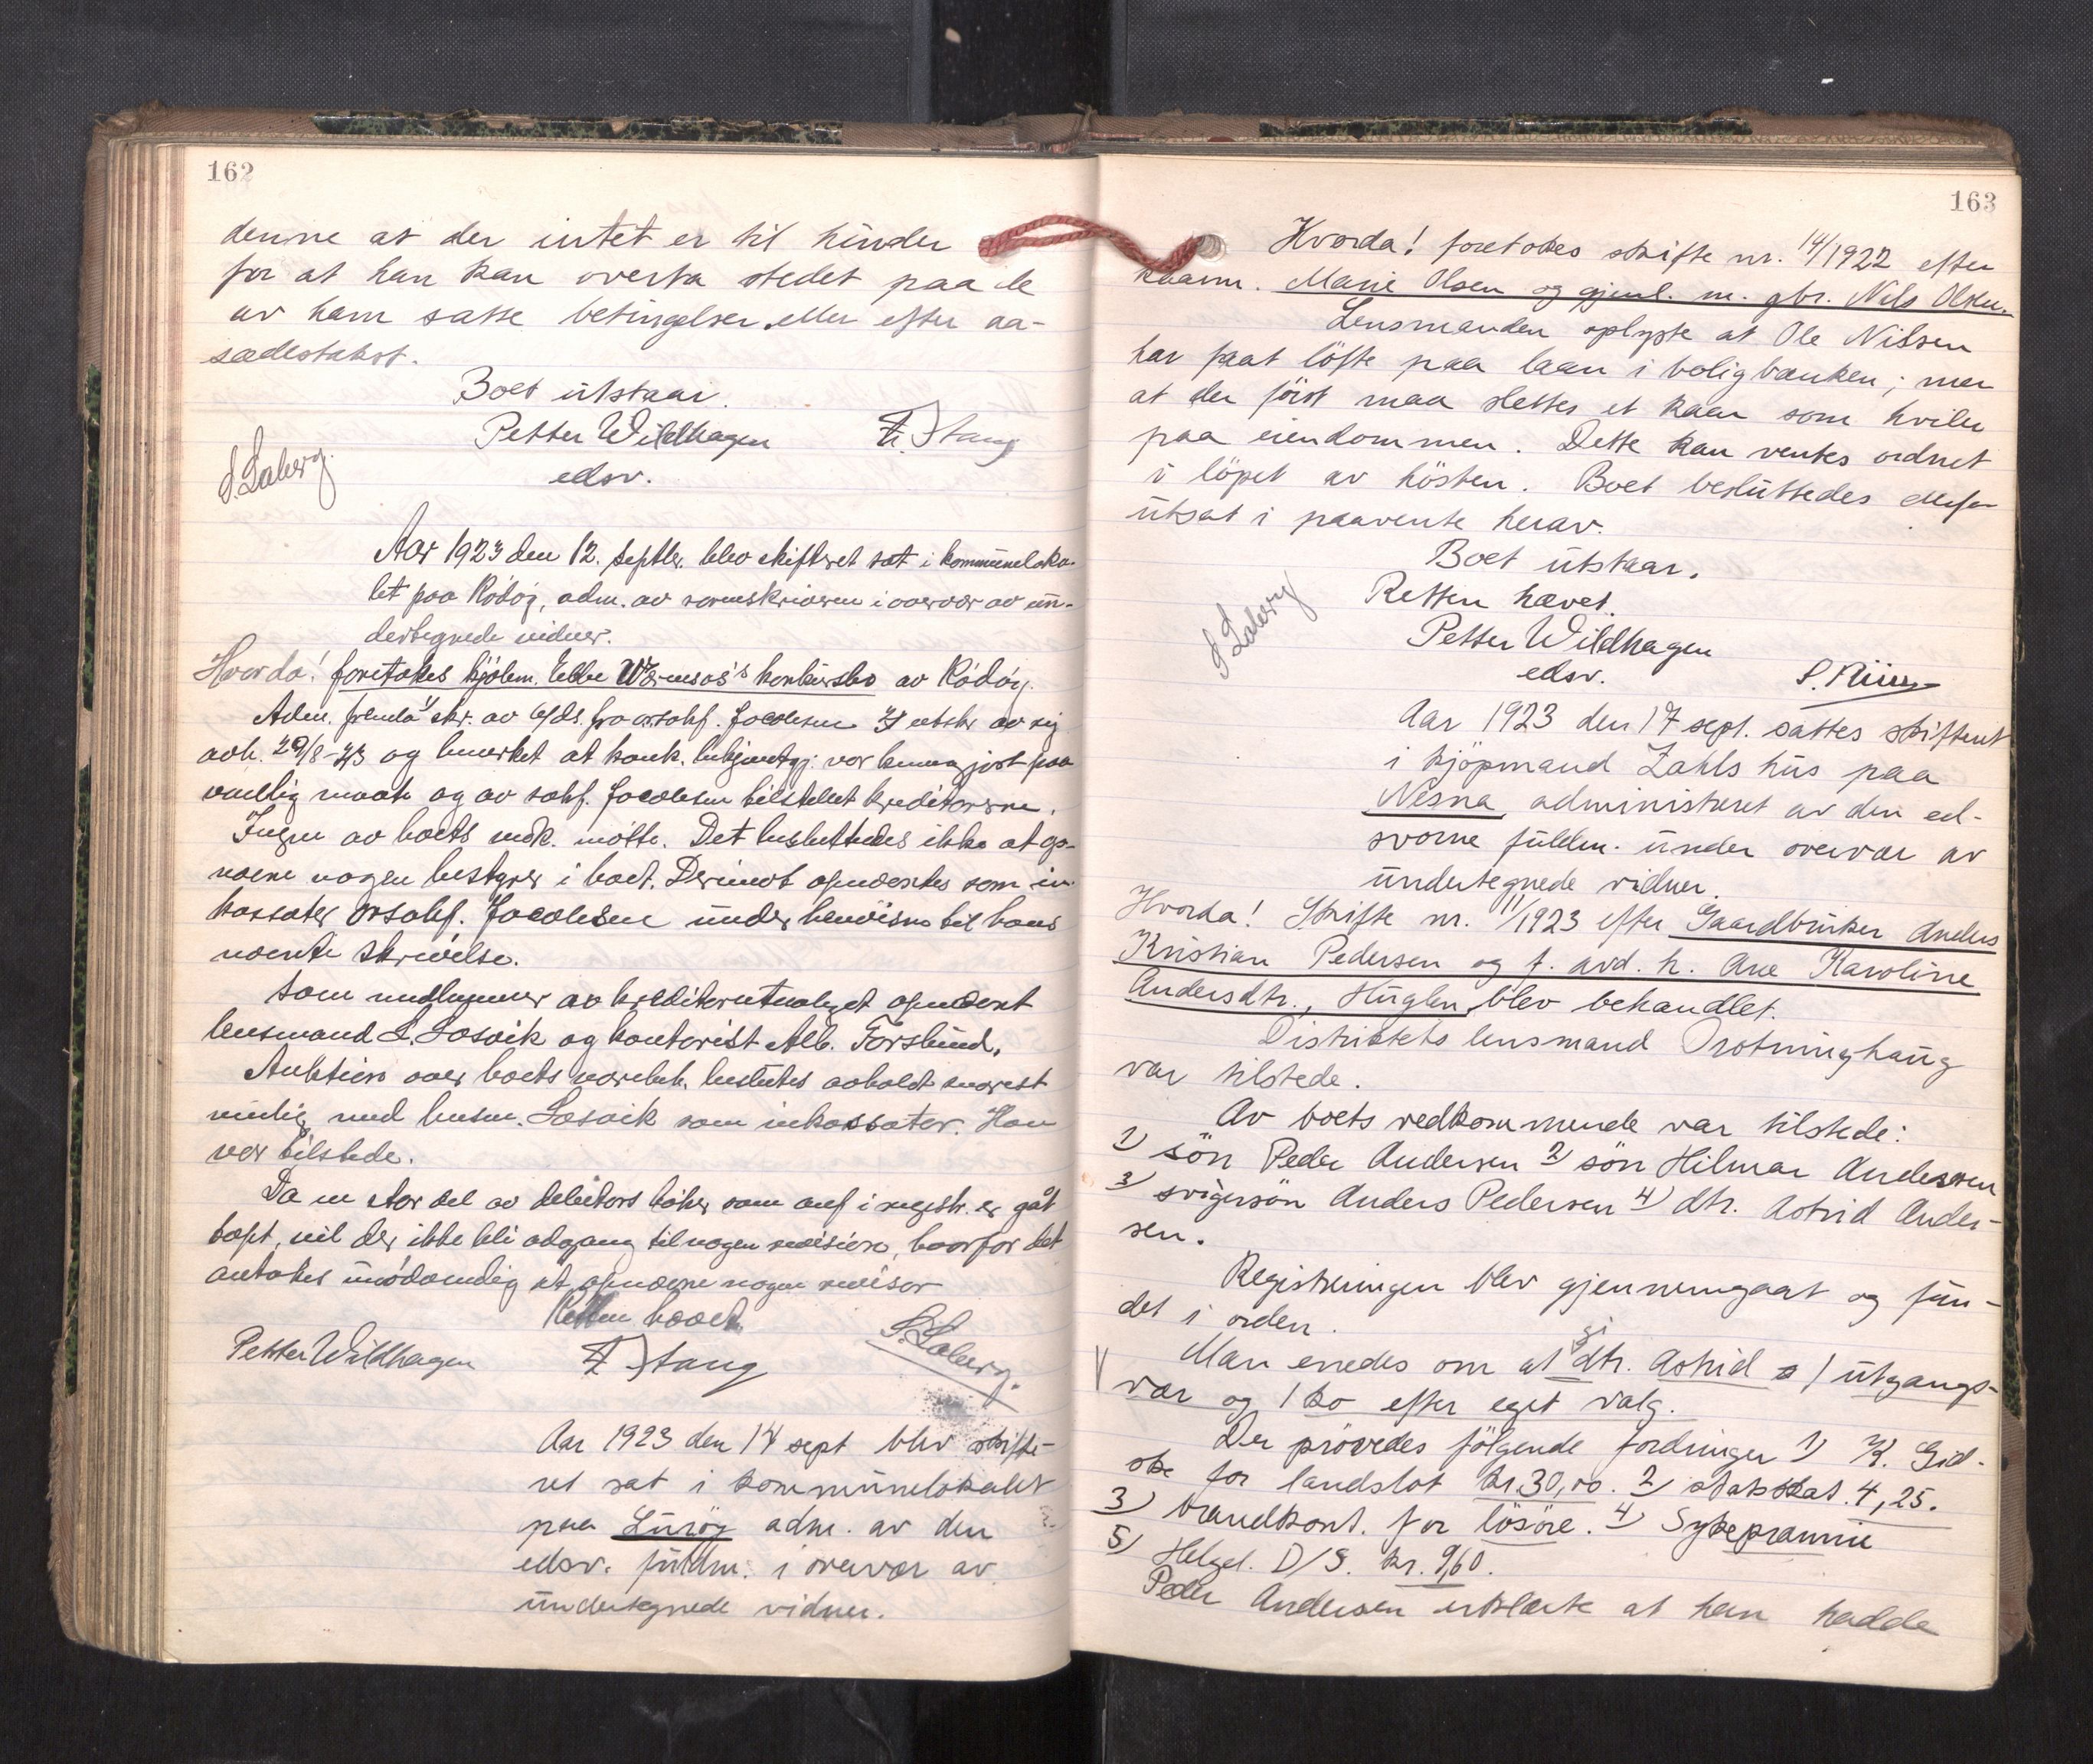 162
denne at der intet er til hinder
for at han kan overta stedet paa de
av ham satte betingelser eller efter aa-
sædestakst.
Boet utstaar.
Petter Wildhagen
edsv.
Stang
S. Laberg.
Aar 1923 den 12. septbr. blev skifteret sat i kommuneloka-
let paa Rödöy, adm. av sorenskriveren i overvær av un-
dertegnede vidner.
Hvorda! foretokes kjöbm. Ebbe konkursbo av Rödöy.
Adm. fremla skr. av fra orsakf. Jacobsen
avh. 29/8-23 og bemerket at konk. bekjentgj. var kunngjort paa
vanlig maate og av sakf. Jacobsen tilstillet kreditorerne.
Ingen av boets vedk. mötte. Det besluttedes ikke at op-
nævne nogen bestyrer i boet. Derimot opnævntes som in-
kassator orsakf. Jacobsen under henvisning til hans
nævnte skrivelse.
Som medlemmer av kreditorutvalget opnævnt
lensmand L. Løsvik og kontorist Alb. Forslund.
Auktion over boets varebeh. besluttes avholdt snarest
mulig med lensm. Løsvik som inkassator. Han
var tilstede.
Da en stor del av debitors böker som anf. i registr. er gåt
tapt, vil der ikke bli adgang til nogen revision, hvorfor det
antokes unödvendig at opnævne nogen revisor
Retten hævet.
Petter Wildhagen
Stang
S. Laberg.
Aar 1923 den 14 sept blev skifte-
ret sat i kommunelokalet
paa Luröy adm. av den
edsv. fuldm. i overvær av
undertegnede vidner.
163
Hvorda! foretokes skifte nr. 14/1922 efter
kaarm. Marie Olsen og gjenl. m. gbr. Nils Olsen.
Lensmanden oplyste at Ole Nilsen
har faat löfte paa laan i boligbanken; men
at der först maa slettes et kaar som hviler
paa eiendommen. Dette kan ventes ordnet
i löpet av hösten. Boet besluttedes derfor
utsat i paavente herav.
Boet utstaar.
Retten hævet.
Petter Wildhagen
edsv.
S. Laberg
Aar 1923 den 17 sept. sattes skifteret
i kjöpmand Zahls hus paa
Nesna administreret av den ed-
svorne fuldm. under overvær av
undertegnede vidner.
Hvorda! Skifte nr. 11/1923 efter Gaardbruker Anders
Kristian Pedersen og f. avd. h. Ane Karoline
Andersdtr., Huglen, blev behandlet.
Distriktets lensmand Drotninghaug
var tilstede.
Av boets vedkommende var tilstede:
1) sön Peder Andersen 2) sön Hilmar Andersen
3) svigersön Anders Pedersen 4) dtr. Astrid Ander-
sen.
Registreringen blev gjennemgaat og fun-
det i orden.
Man enedes om at gi dtr. Astrid 1 utgangs-
vær og 1 ko efter eget valg.
Der prövedes fölgende fordringer 1) K. Gid-
ske for landslot kr. 30,00. 2) statsskat. 4,25.
3) brandkont. for lösöre. 4) Sykepræmie
5) Helgel. D/S. kr. 9,60.
Peder Andersen erklærte at han hadde